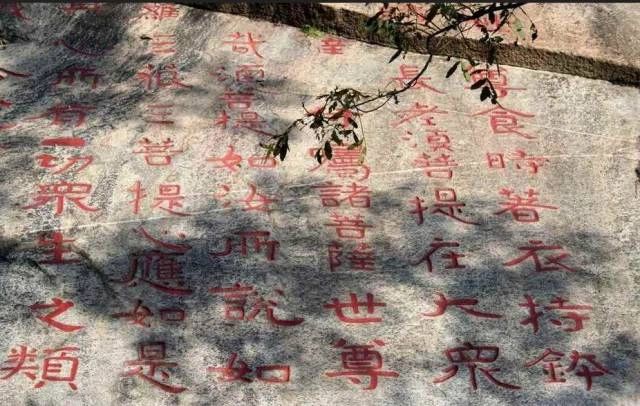 尊食時著衣持鉢
長老湏菩提在大衆
薩付囑諸菩薩世尊
哉湏菩提如汝所說如
羅三藐三菩提心應如是
心所有一切衆生之類